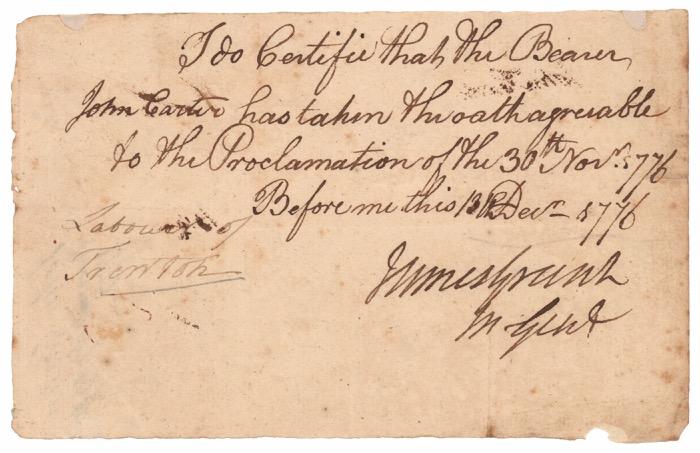 I do Certifie that the Bearer
John Carter has taken the oath agreeable
to the Proclamation of the 30th Novr. 1776
Before me this 13th Decr 1776
Labourer of
Trenton
James Grant
M Genl